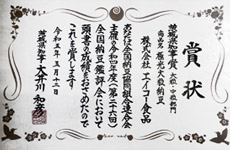 賞状
茨城県知事賞 大粒・中粒部門
商品名 極光大粒納豆
株式会社 エイコー食品
あなたは全国納豆協同組合連合会
主催の令和五年度(第二十六回)
全国納豆鑑評会において
頭書の成績をおさめたので
これを賞します
令和五年五月十三日
茨城県知事 大井川 和彦